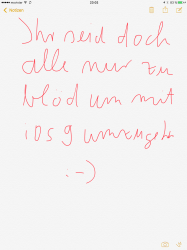 Notizen
Ihr seid doch
alle nur zu
blöd um mit
iOS 9 umzugehn
:-)